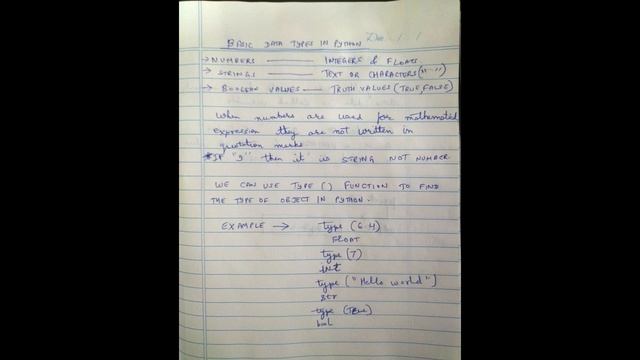 Date / /
BASIC DATA TYPES IN PYTHON
→ NUMBERS — INTEGERS & FLOATS
→ STRINGS — TEXT OR CHARACTERS (" - ")
→ BOOLEAN VALUES — TRUTH VALUES (TRUE, FALSE)
When numbers are used for mathematical
expression they are not written in
quotation marks
* IF "9" then it is STRING NOT NUMBER.
WE CAN USE TYPE () FUNCTION TO FIND
THE TYPE OF OBJECT IN PYTHON.
EXAMPLE → type (6.4)
FLOAT
type (7)
int
type ("Hello world")
str
type (True)
bool